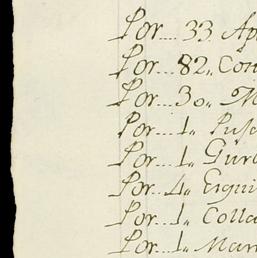 Por.... 33. Ap
Por... 82,, Con
Por... 30,, M
Por... 1,, Pusc
Por... 1,, Gura
Por... 4,, Esqui
Por... 1,, Colla
Por... 1,, Man